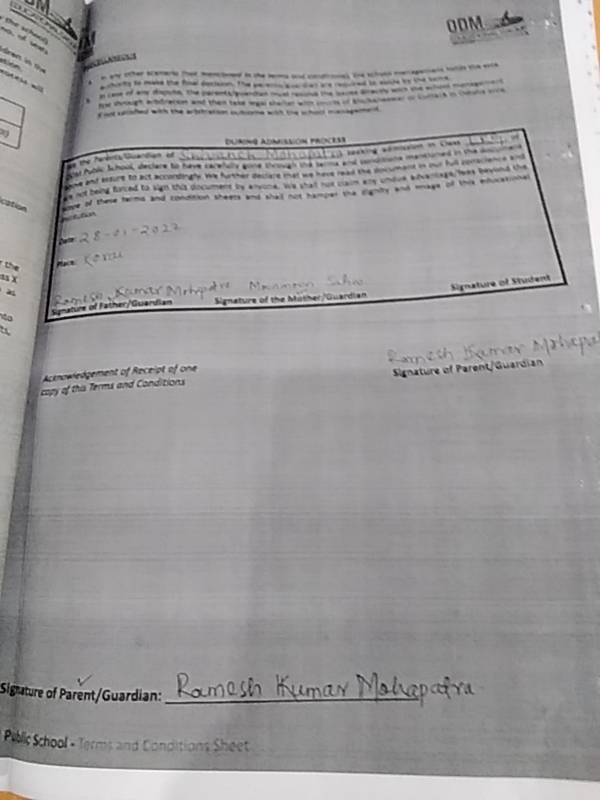 ODM
MISCELLANEOUS
In any other scenario (not mentioned in the terms and conditions), the school management holds the sole
authority to make the final decision. The parents/guardian are required to abide by the same.
In case of any dispute, the parents/guardian must resolve the issues directly with the school management
first through arbitration and then take legal shelter with courts of Bhubaneswar or Cuttack in Odisha
if not satisfied with the arbitration outcome with the school management.
DURING ADMISSION PROCESS
the Parents/Guardian of Shivansh Mohapatra seeking admission in Class of
Public School, declare to have carefully gone through the terms and conditions mentioned in the document
above and assure to act accordingly. We further declare that we have read the document in our full conscience and
are not being forced to sign this document by anyone. We shall not claim any undue advantage/fees beyond the
scope of these terms and condition sheets and shall not hamper the dignity and image of this educational
institution.
Date: 28-01-2022
Place:
Ramesh Kumar Mohapatra Sahoo
Signature of Father/Guardian Signature of the Mother/Guardian Signature of Student
Ramesh Kumar Mohapat
Acknowledgement of Receipt of one Signature of Parent/Guardian
copy of this Terms and Conditions
Signature of Parent/Guardian: Ramesh Kumar Mohapatra
Public School - Terms and Conditions Sheet